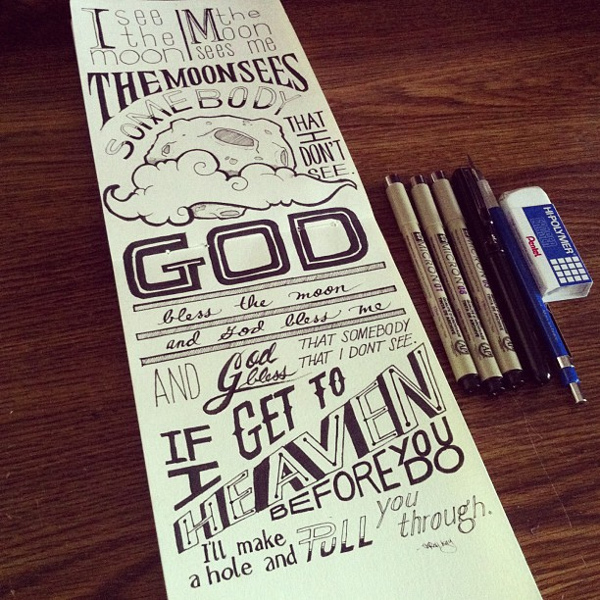 I see the moon
the Moon sees me
THE MOON SEES
SOMEBODY
THAT
I
DON'T
SEE.
GOD
bless the moon
and God bless me
AND God bless
THAT SOMEBODY
THAT I DONT SEE.
IF I GET TO
HEAVEN
BEFORE YOU DO
I'll make
a hole and PULL you through.
MICRON
HI-POLYMER
Pentel